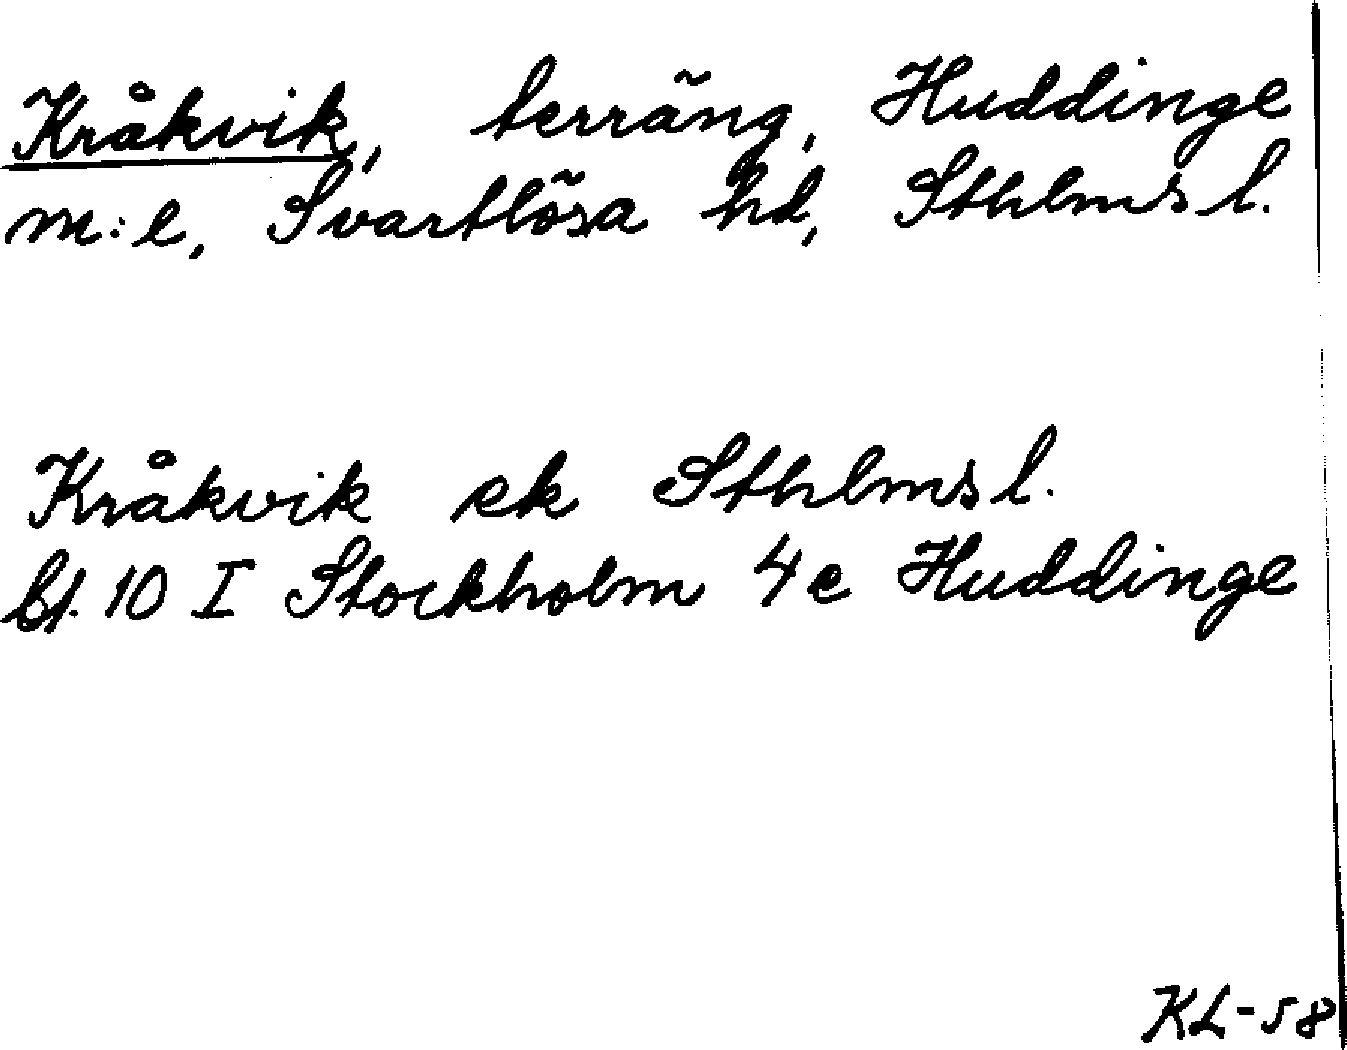 Kråkvik, terräng, Huddinge
m:e, Svartlösa hd, Sthlms l.
Kråkvik ek Sthlms l.
bl. 10 I Stockholm 4 e Huddinge
KL-58